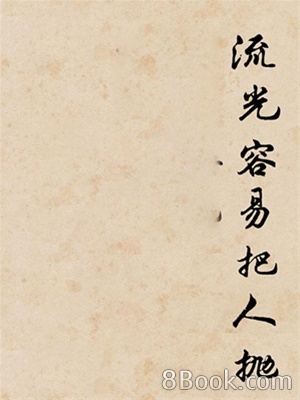 流光容易把人抛
8Book.com